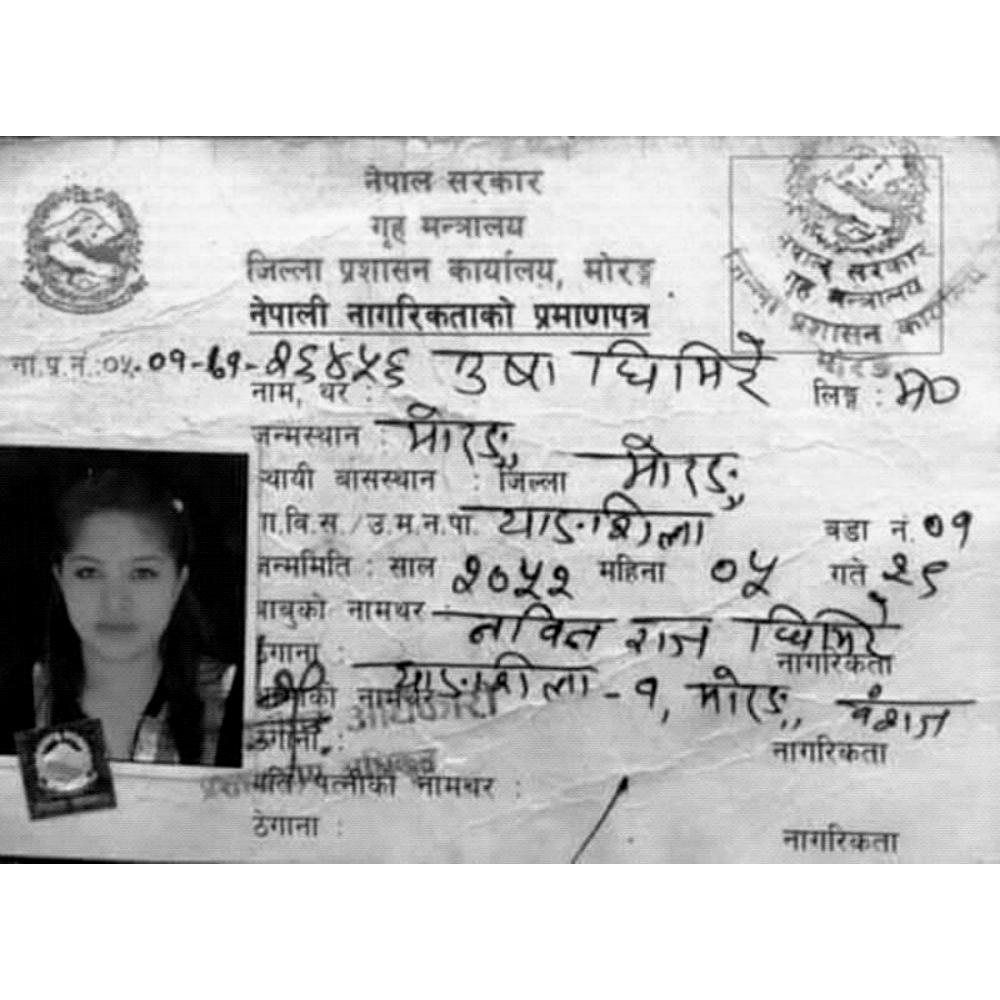 नेपाल सरकार
गृह मन्त्रालय
जिल्ला प्रशासन कार्यालय, मोरङ्ग
नेपाली नागरिकताको प्रमाणपत्र
नेपाल सरकार
गृह मन्त्रालय
जिल्ला प्रशासन कार्यालय
मोरङ
ना.प्र.नं.:०५-०१-७१-२६४५६ उषा घिमिरे
नाम, थर : लिङ्ग : म०
जन्मस्थान : मोरङ,
स्थायी बासस्थान : जिल्ला मोरङ,
गा.वि.स./उ.म.न.पा. याङशिला वडा नं. ०१
जन्ममिति : साल २०५२ महिना ०५ गते २९
बाबुको नामथर नविन राज घिमिरे
ठेगाना : याङशिला -१, मोरङ, नागरिकता
वंशज
आमाको नामथर
ठेगाना : नागरिकता
पति/पत्नीको नामथर :
ठेगाना : नागरिकता